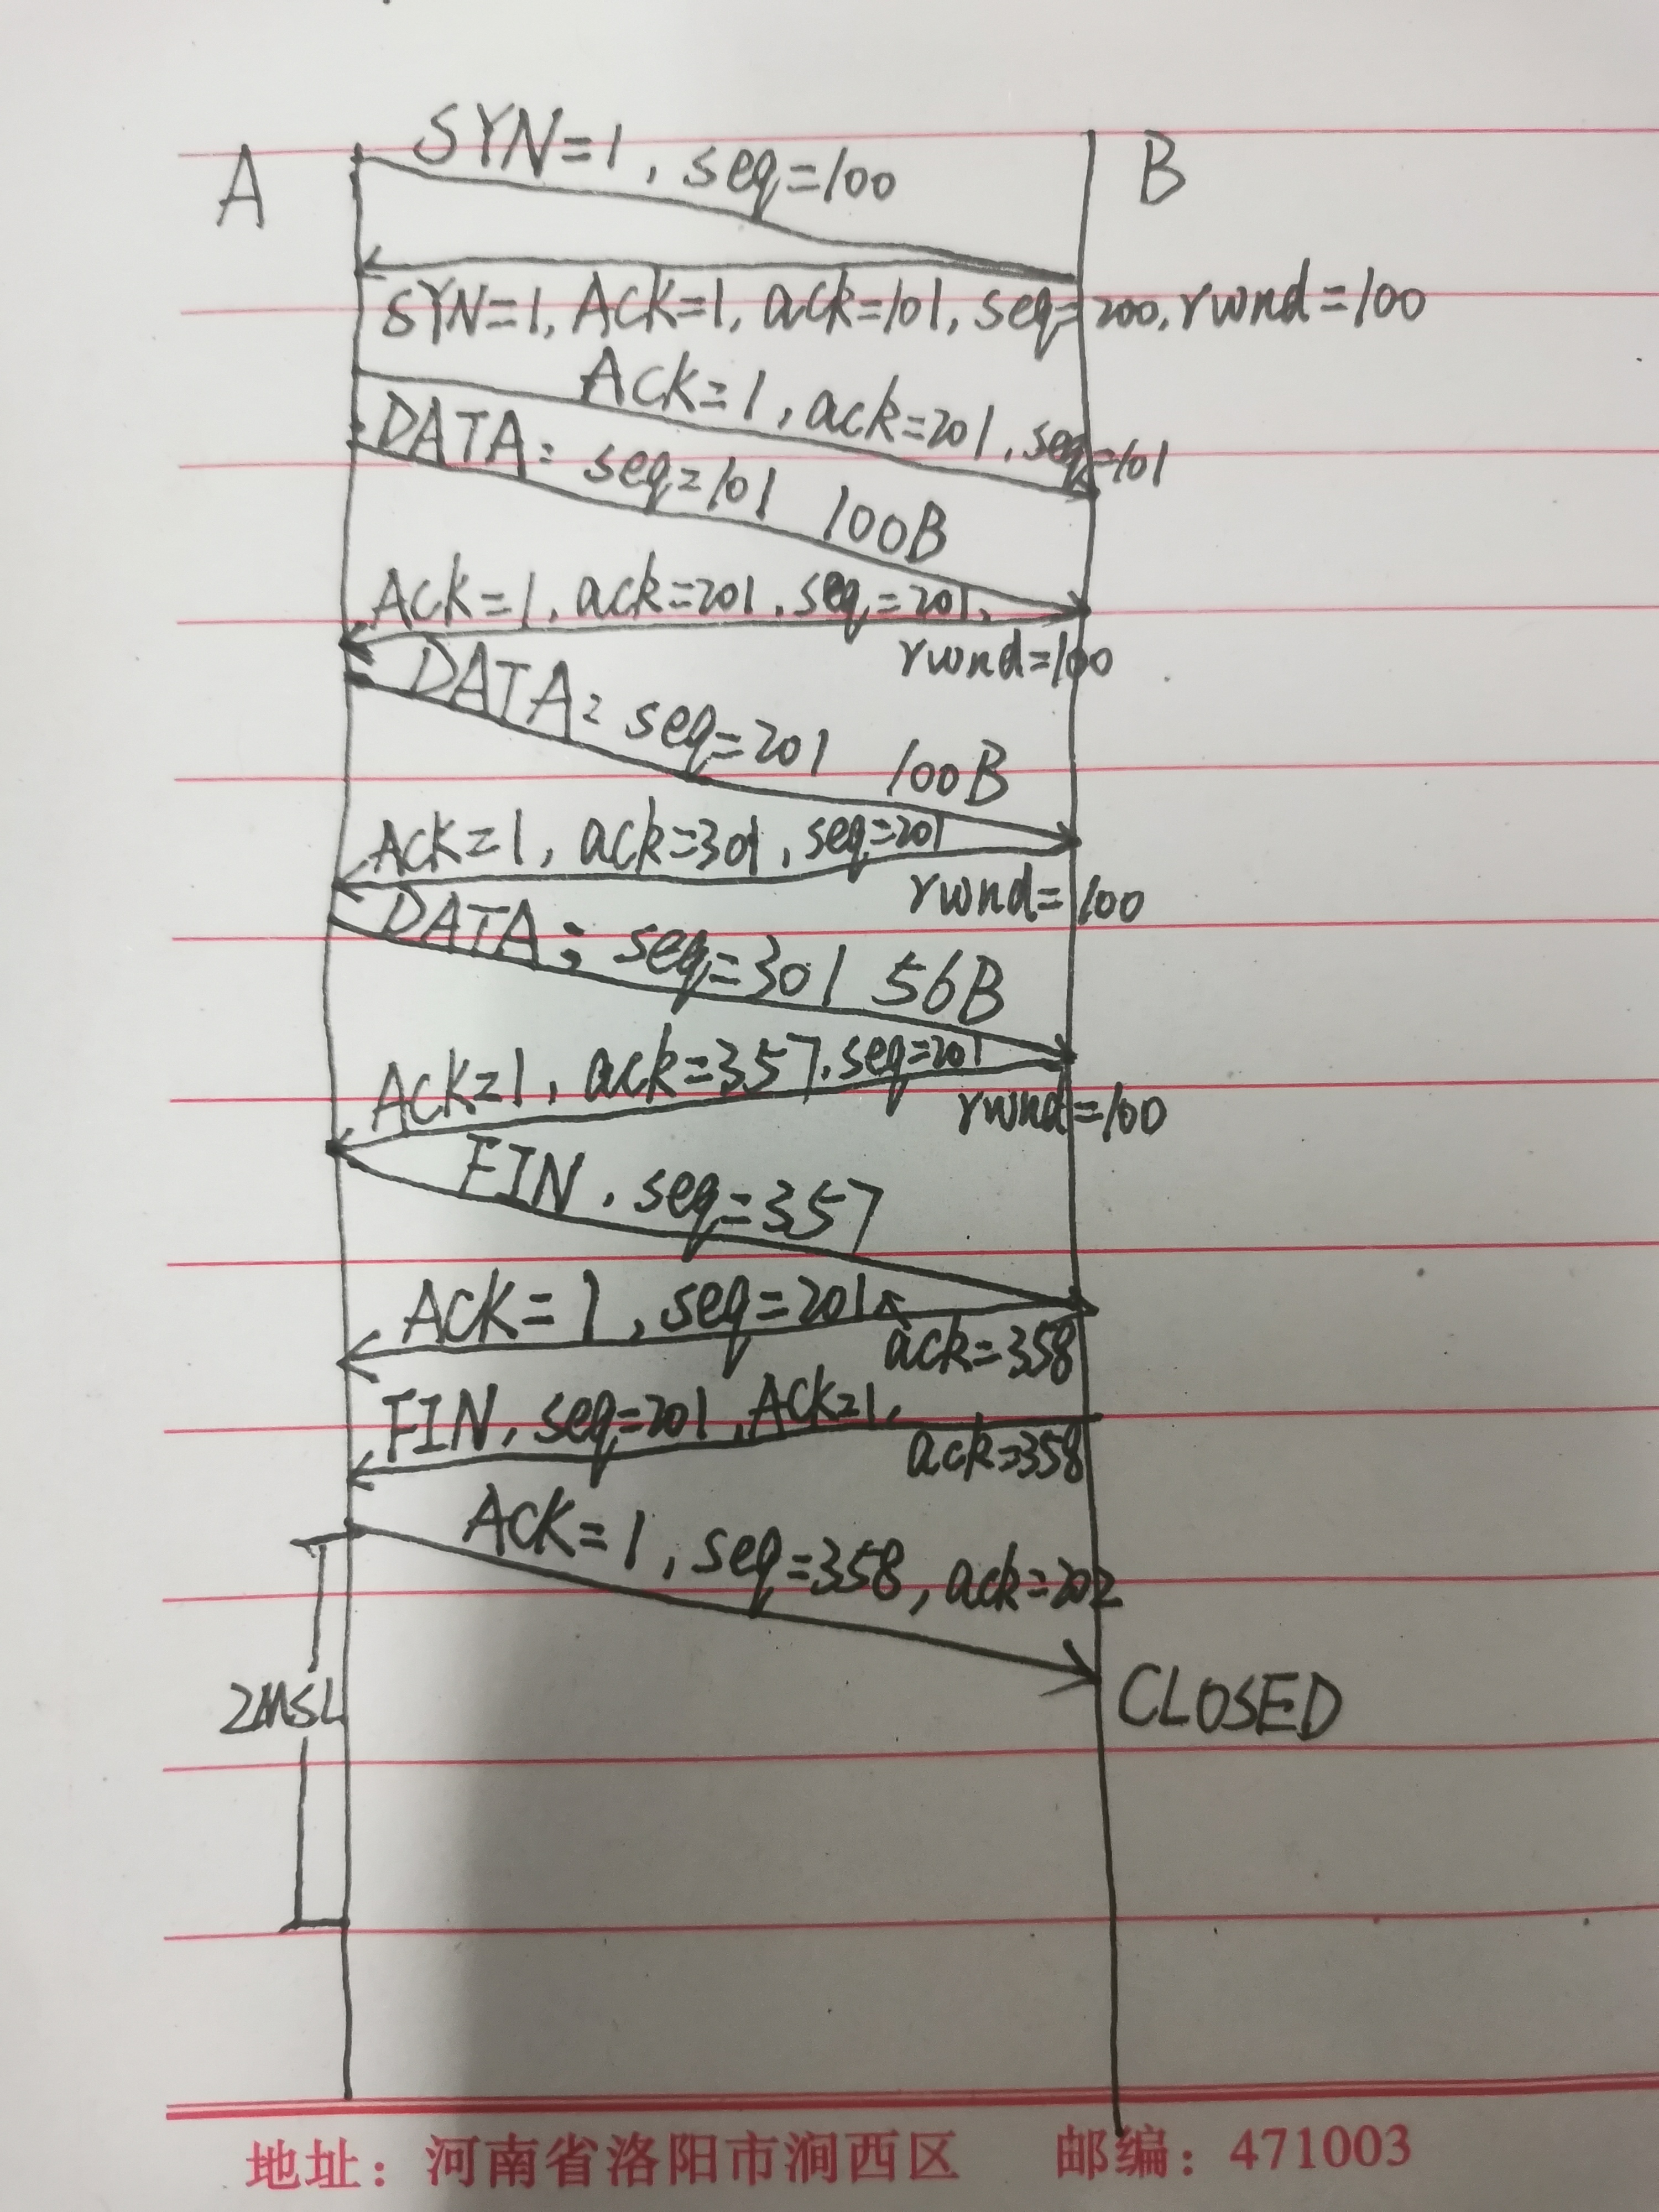 A
B
SYN=1, seq=100
SYN=1, ACK=1, ack=101, seq=200, rwnd=100
ACK=1, ack=201, seq=101
DATA: seq=101 100B
ACK=1, ack=201, seq=201,
rwnd=100
DATA: seq=201 100B
ACK=1, ack=301, seq=201
rwnd=100
DATA: seq=301 56B
ACK=1, ack=357, seq=201
rwnd=100
FIN, seq=357
ACK=1, seq=201
ack=358
FIN, seq=201, ACK=1,
ack=358
ACK=1, seq=358, ack=202
2MSL
CLOSED
地址：河南省洛阳市涧西区 邮编：471003